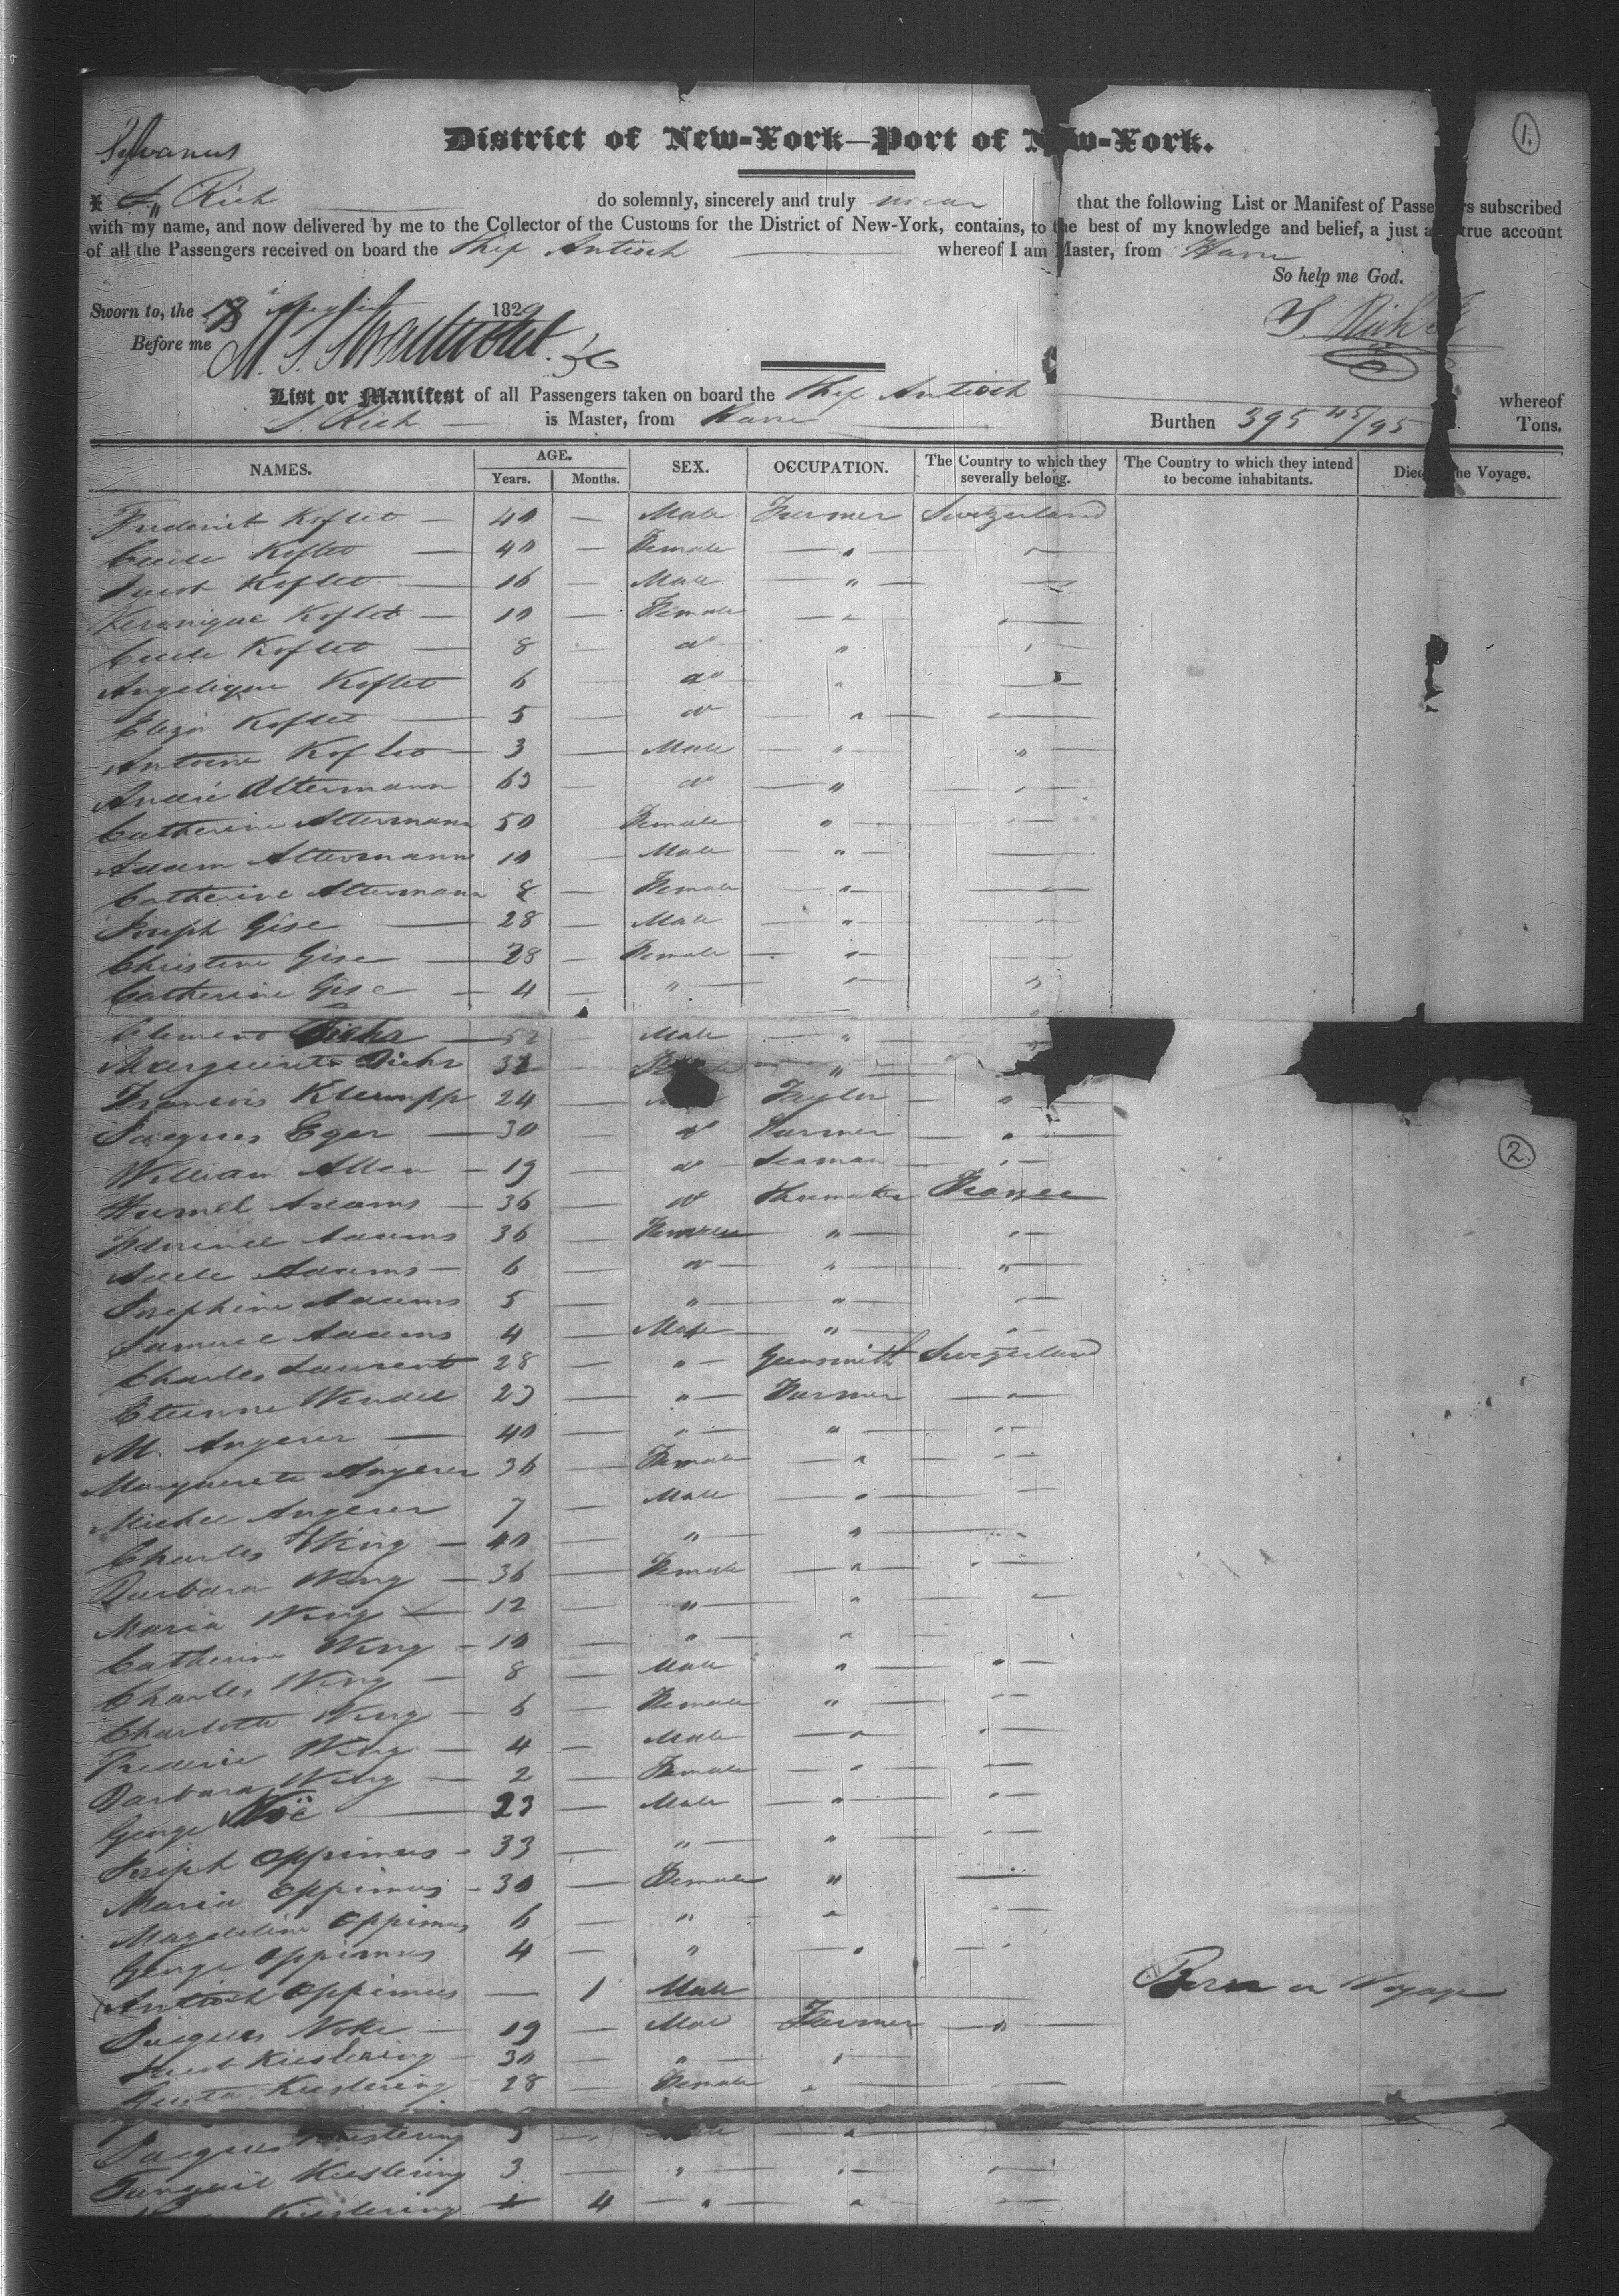 1.
Sylvanus
District of New-York—Port of New-York.
I S. Rich do solemnly, sincerely and truly swear that the following List or Manifest of Passengers subscribed
with my name, and now delivered by me to the Collector of the Customs for the District of New-York, contains, to the best of my knowledge and belief, a just and true account
of all the Passengers received on board the Ship Antioch whereof I am Master, from Havre
So help me God.
Sworn to, the 18 1829
Before me
S. Rich
List or Manifest of all Passengers taken on board the Ship Antioch whereof
S. Rich is Master, from Havre Burthen 395 45/95 Tons.
NAMES. AGE. Years. Months. SEX. OCCUPATION. The Country to which they severally belong. The Country to which they intend to become inhabitants. Died on the Voyage.
Frederick Koflet — 40 — Male Farmer Switzerland
Cecile Koflet — 40 — Female — " — "
Jacob Koflet — 16 — Male — " —
Veronique Koflet — 10 — Female — " —
Cecile Koflet — 8 do " "
Angelique Koflet 6 do " —
Eliza Koflet — 5 — do — " — " —
Antoine Koflet — 3 — Male — " — " —
André Altermann 63 — do — " "
Catherine Altermann 50 Female " — "
Adam Altermann 10 — Male — " — —
Catherine Altermann 8 — Female — " — "
Joseph Gise — 28 — Male — " — "
Christine Gise — 28 — Female — " — —
Catherine Gise — 4 — " — " — "
Clement Diehr — 52 Male — " — "
Marguerite Diehr 32 — " —
Francois Klumpp 24 — Taylor — "
Jacques Eger — 30 — do Farmer — " —
William Allen — 19 — do Seaman — " —
Adams — 36 — do Shoemaker France
Adams 36 — Female " — " —
Adele Adams — 6 — do — " — " —
Josephine Adams 5 — " — " — " —
Samuel Adams 4 — Male — " — "
Charles Laurent 28 — " — Gunsmith Switzerland
Etienne Wendel 23 — " — Farmer — " —
M. Angerer — 40 — " — " — " —
Marguerite Angerer 36 — Female — " — " —
Michel Angerer 7 — Male — " — " —
Charles Wing — 40 — " — " —
Barbara Wing — 36 — Female — " — " —
Maria Wing — 12 — " — " "
Catherine Wing — 10 — " — "
Charles Wing — 8 — Male " — " —
Charlotte Wing — 6 — Female " — " —
Frederic Wing — 4 — Male — " " —
Barbara Wing — 2 — Female — " — " —
George Noë — 23 — Male — " — " —
Joseph Oppimus — 33 — " — " — " —
Maria Oppimus — 30 — Female " —
Magdeline Oppimus 6 — " — " " —
George Oppimus 4 — " — " — "
Antioch Oppimus — 1 Male Born on Voyage
Jacques Noke — 19 — Male Farmer — " —
Jacob Kiestering — 30 — " "
Kiestering 28 — Female " —
Jacques Kiestering 5 — "
Kiestering 3 — " — " — " —
Kiestering 4 — " — " —
2.